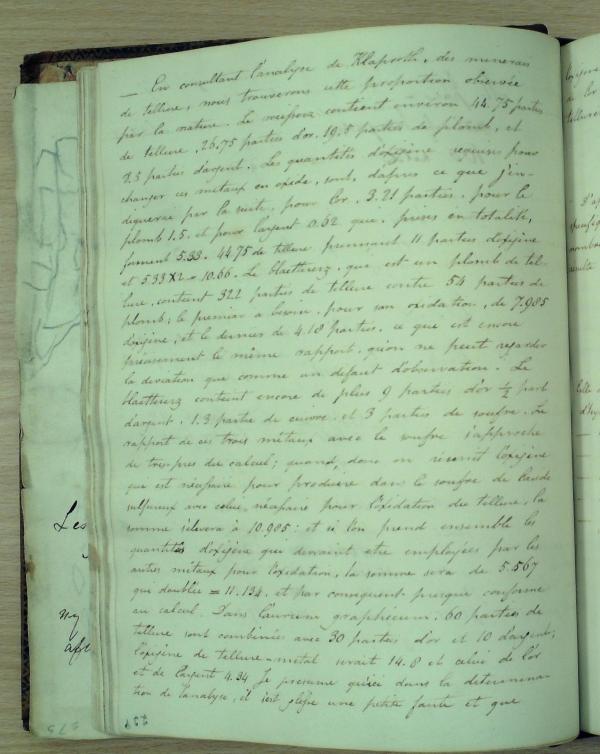 — En consultant l'analyse de Klaproth, des minerais
de tellure, nous trouverons cette proportion observée
par la nature. Le weisserz contient environ 44.75 parties
de tellure, 26.75 parties d'or, 19.5 parties de plomb, et
8.5 parties d'argent. Les quantités d'oxigène requises pour
changer ces métaux en oxide, sont, d'après ce que j'in-
diquerai par la suite, pour l'or, 3.21 parties, pour le
plomb 1.5, et pour l'argent 0.62 que, prises en totalité,
forment 5.33. 44.75 de tellure prennent 11 parties d'oxigène
et 5.33 X 2 = 10.66. Le blaetterz, que est un plomb de tel-
lure, contient 32.2 parties de tellure contre 54 parties de
plomb; le premier a besoin, pour son oxidation, de 7.985
d'oxigène, et le dernier de 4.18 parties, ce que est encore
précisement le même rapport, qu'on ne peut regarder
la deviation que comme un defaut d'observation. Le
blaetterz contient encore de plus 9 parties d'or ½ part
d'argent, 1.3 partie de cuivre, et 3 parties de soufre. Le
rapport de ces trois métaux avec le soufre s'approche
de très pres du calcul; quand, donc on réunit l'oxigène
que est nécessaire pour produire dans le soufre de l'acide
sulfureux avec celui, nécessaire pour l'oxidation du tellure, la
somme s'élevera à 10.985: et si l'on prend ensemble les
quantités d'oxigène qui devraient etre employées par les
autres métaux pour l'oxidation, la somme sera de 5.567
qui doublée = 11.134, et par consequent presque conforme
au calcul. Dans l'aurum graphicum, 60 parties de
tellure sont combinées avec 30 parties d'or et 10 d'argent;
l'oxigène de tellure-metal serait 14.8 et celui de l'or
et de l'argent 4.34 Je presume qu'ici dans la determina-
tion de l'analyse, il s'est glissé une petite faute et que
227
Les